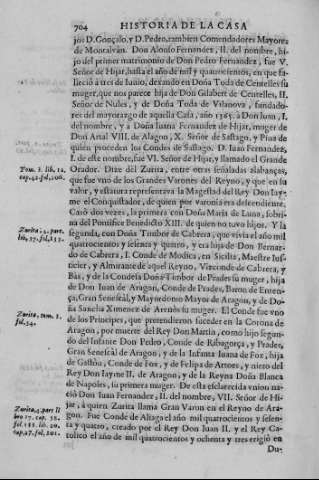 704 HISTORIA DE LA CASA
jos D. Gonçalo, y D. Pedro, tambien Comendadores Mayores
de Montalvàn. Don Alonso Fernandez, II. del nombre, hi-
jo del primer matrimonio de Don Pedro Fernandez, fue V.
Señor de Hijar, hasta el año de mil y quatrocientos, en que fa-
lleciò à tres de Iunio, dexando en Doña Toda de Centelles su
muger, que nos parece hija de Don Gilabert de Centelles, II.
Señor de Nules, y de Doña Toda de Vilanova, fundado-
res del mayorazgo de aquella Casa, año 1365. à Don Iuan, I.
del nombre, y à Doña Iuana Fernandez de Hijar, muger de
Don Artal VIII. de Alagon, X. Señor de Sastago, y Pina de
quien proceden los Condes de Sastago. D. Iuan Fernandez,
I. de este nombre, fue VI. Señor de Hijar, y llamado el Grande
Tom. 3. lib. 12.
cap. 42. fol. 106.
Orador. Dize del Zurita, entre otras señaladas alabanças,
que fue vno de los Grandes Varones del Reyno, y que en su
valor, y estatura representava la Magestad del Rey Don Iay-
me el Conquistador, de quien por varonia era descendiente.
Casò dos vezes, la primera con Doña Maria de Luna, sobri-
na del Pontifice Benedicto XIII. de quien no tuvo hijor. Y la
Zurita, 4. part.
lib. 37. fol. 255.
segunda, con Doña Timbor de Cabrera, que vivia el año mil
quatrocientos y sesenta y quatro, y era hija de Don Bernar-
do de Cabrera, I. Conde de Modica, en Sicilia, Maestre Ius-
ticier, y Almirante de aquel Reyno, Vizconde de Cabrera, y
Bas, y de la Condesa Doña Timbor de Prades su muger, hija
de Don Iuan de Aragon, Conde de Prades, Baron de Enten-
ça, Gran Senescal, y Mayordomo Mayor de Aragon, y de Do-
ña Sancha Ximenez de Arenòs su muger. El Conde fue vno
Zurita, tom. 3.
fol. 54.
de los Principes, que pretendieron suceder en la Corona de
Aragon, por muerte del Rey Don Martin, como hijo segun-
do del Infante Don Pedro, Conde de Ribagorça, y Prades,
Gran Senescal de Aragon, y de la Infanta Iuana de Fox, hija
de Gaston, Conde de Fox, y de Felipa de Artoes, y nieto del
Rey Don Iayme II. de Aragon, y de la Reyna Doña Blanca
de Napoles, su primera muger. De esta esclarecida vnion na-
ciò Don Iuan Fernandez, II. del nombre, VII. Señor de Hi-
Zurita, 4. part. li
bro 17. cap. 58.
fol. 155. lib. 20.
cap. 27. fol. 201.
jar, à quien Zurita llama Gran Varon en el Reyno de Ara-
gon. Fue Conde de Aliaga el año mil quatrocientos y sesen-
ta y quatro, creado por el Rey Don Iuan II. y el Rey Ca-
tolico el año de mil quatrocientos y ochenta y tres erigiò en
Du-